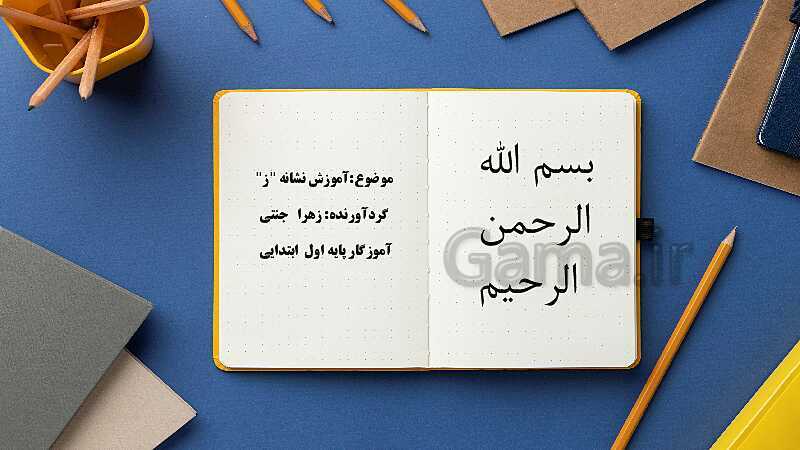 بسم الله
الرحمن
الرحیم
موضوع:آموزش نشانه "ز"
گردآورنده: زهرا جنتی
آموزگار پایه اول ابتدایی
Gama.ir